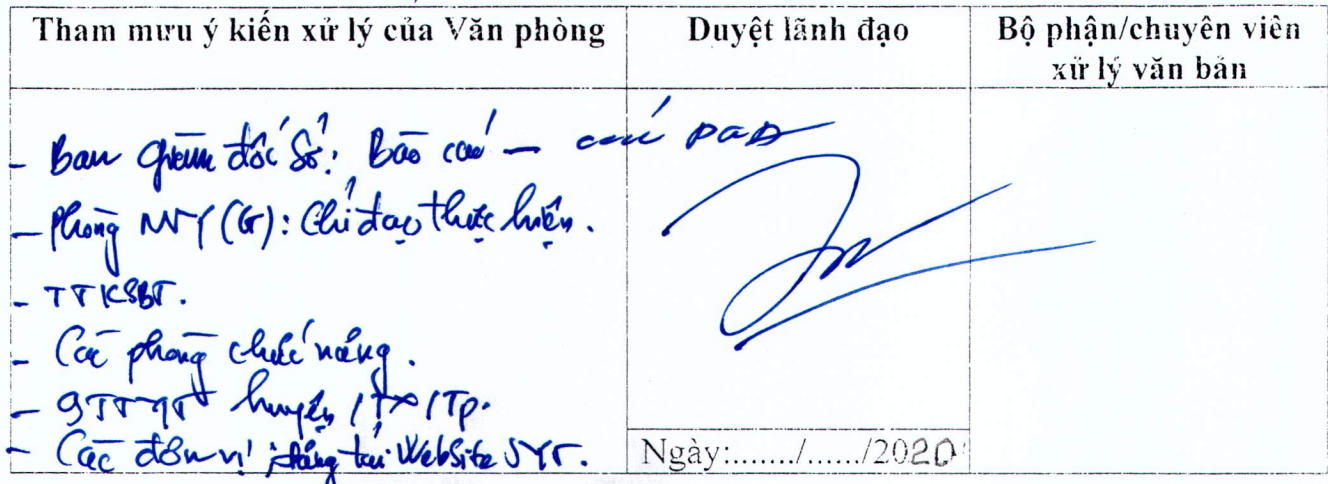 Tham mưu ý kiến xử lý của Văn phòng
Duyệt lãnh đạo
Bộ phận/chuyên viên
xử lý văn bản
- Ban Giám đốc Sở: Báo cáo -
- Phòng NVY (G): Chỉ đạo thực hiện.
- TTKSBT.
- Các phòng chức năng.
- 9TTYT huyện/TX/TP.
- Các đơn vị: đăng tải WebSite SYT.
Ngày:......./....../2020